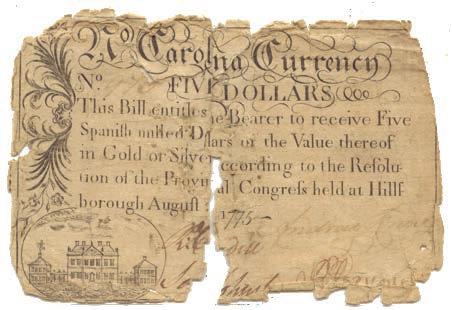 No Carolina Currency
No.
FIVE DOLLARS
This Bill entitles the Bearer to receive Five
Spanish milled Dollars or the Value thereof
in Gold or Silver according to the Resolu-
tion of the Provincial Congress held at Hills-
borough August 1775